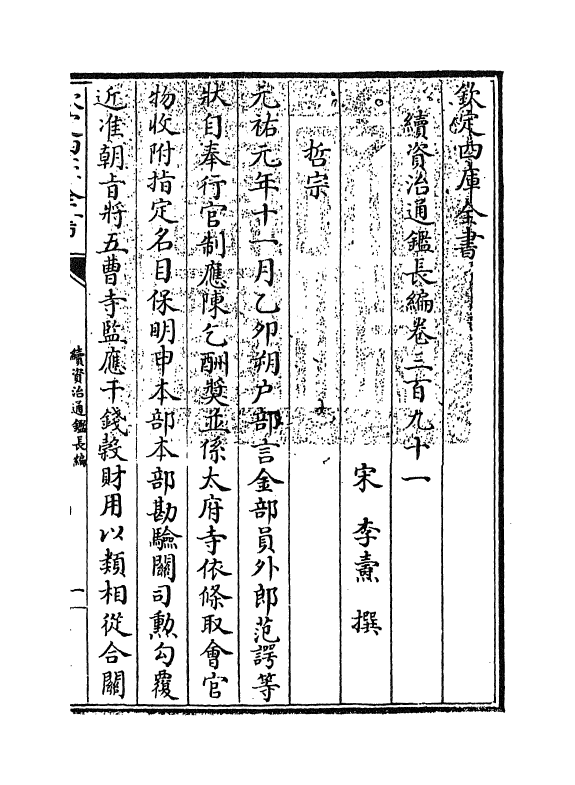 欽定四庫全書
續資治通鑑長編卷三百九十一
宋 李燾 撰
哲宗
元祐元年十一月乙卯朔户部言金部員外郎范諤等
狀自奉行官制應陳乞酬奬並係太府寺依條取會官
物收附指定名目保明申本部本部勘驗關司勲勾覆
近准朝㫖將五曹寺監應干錢榖財用以類相從合關
續資治通鑑長編
一